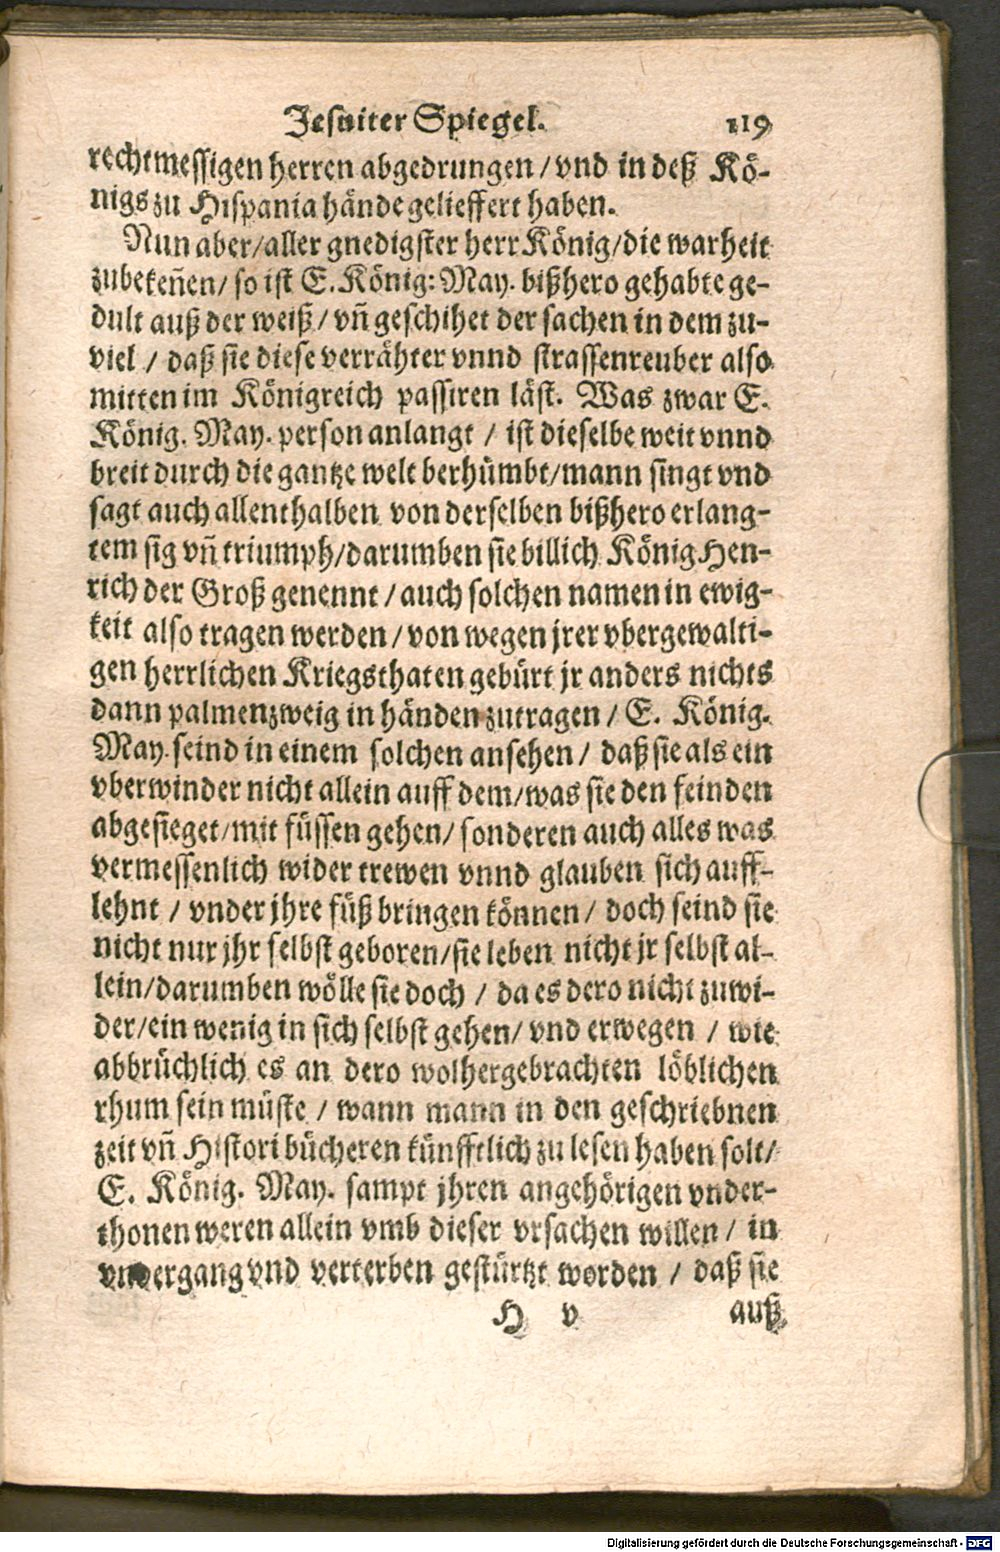 Jesuiter Spiegel. 119
rechtmessigen herren abgedrungen / vnd in deß Kö-
nigs zu Hispania hände gelieffert haben.
Nun aber/aller gnedigster herr König/die warheit
zubekeñen/ so ist E. König: May. bißhero gehabte ge-
dult auß der weiß/ vñ geschihet der sachen in dem zu-
viel / daß sie diese verrähter vnnd strassenreuber also
mitten im Königreich passiren läst. Was zwar E.
König. May. person anlangt / ist dieselbe weit vnnd
breit durch die gantze welt berhümbt/mann singt vnd
sagt auch allenthalben von derselben bißhero erlang-
tem sig vñ triumph/darumben sie billich König Hen-
rich der Groß genennt / auch solchen namen in ewig-
keit also tragen werden / von wegen jrer vbergewalti-
gen herrlichen Kriegsthaten gebürt jr anders nichts
dann palmenzweig in händen zutragen / E. König.
May. seind in einem solchen ansehen / daß sie als ein
vberwinder nicht allein auff dem/was sie den feinden
abgesieget/mit füssen gehen/ sonderen auch alles was
vermessenlich wider trewen vnnd glauben sich auff-
lehnt / vnder jhre füß bringen können / doch seind sie
nicht nur jhr selbst geboren/sie leben nicht jr selbst al-
lein/darumben wölle sie doch / da es dero nicht zuwi-
der/ein wenig in sich selbst gehen/ vnd erwegen / wie
abbrüchlich es an dero wolhergebrachten löblichen
rhum sein müste / wann mann in den geschriebnen
zeit vñ Histori bücheren künfftlich zu lesen haben solt/
E. König. May. sampt jhren angehörigen vnder-
thonen weren allein vmb dieser vrsachen willen / in
vndergang vnd verterben gestürtzt worden / daß sie
H v auß
Digitalisierung gefördert durch die Deutsche Forschungsgemeinschaft - DFG